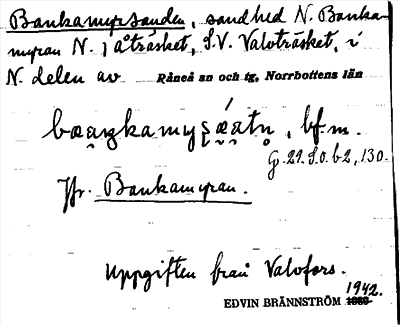 Bankamyrsanden, sandhed N. Banka-
myran N. Jåträsket, S.V. Valvträsket, i
N. delen av Råneå sn och tg, Norrbottens län
bf m.
G. 29. S.O. b2, 130.
Jfr. Bankamyran.
Uppgiften från Valvfors.
1942.
EDVIN BRÄNNSTRÖM 1939